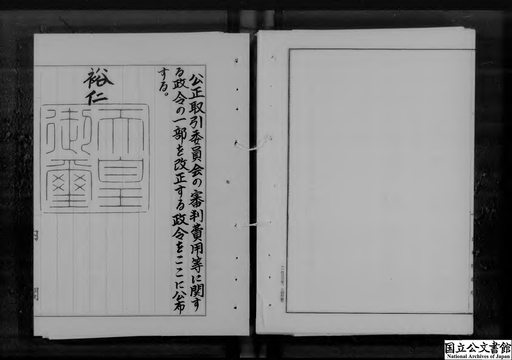 公正取引委員会の審判費用等に関す
る政令の一部を改正する政令をここに公布
する。
裕仁
天皇
御璽
内
閣
国立公文書館
National Archives of Japan